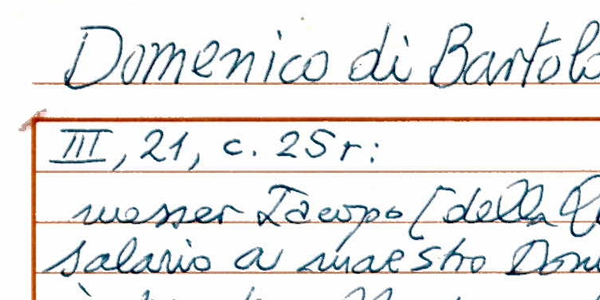 Domenico di Bartolo
III, 21, c. 25r:
messer Iacopo [della
salario a maestro